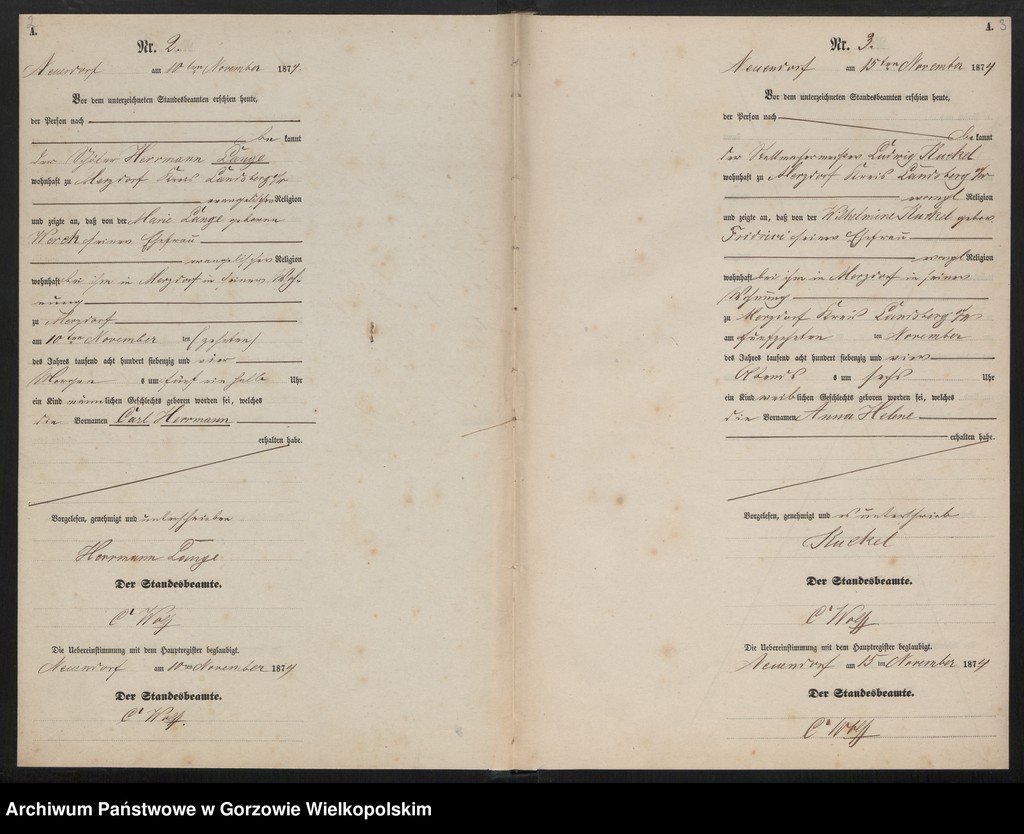 2
A.
Nr. 2.
Neuendorf am 10ten November 1874.
Vor dem unterzeichneten Standesbeamten erschien heute,
der Person nach
be kannt
der Herrmann Lange
wohnhaft zu Merzdorf Kreis Landsberg a/W
evangelischer Religion
und zeigte an, daß von der Marie Lange geborene
Werck seiner Ehefrau
evangelischer Religion
wohnhaft bei ihm in Merzdorf in seiner Woh-
nung
zu Merzdorf
am 10ten November ten (zehnten)
des Jahres tausend acht hundert siebenzig und vier
Morgens um fünf ein halb Uhr
ein Kind männlichen Geschlechts geboren worden sei, welches
die Vornamen Carl Herrmann
erhalten habe.
Vorgelesen, genehmigt und unterschrieben
Herrmann Lange
Der Standesbeamte.
Wolff
Die Uebereinstimmung mit dem Hauptregister beglaubigt.
Neuendorf am 10ten November 1874
Der Standesbeamte.
Wolff.
A. 3
Nr. 3.
Neuendorf am 15ten November 1874
Vor dem unterzeichneten Standesbeamten erschien heute,
der Person nach
be kannt
der Stellmachermeister Ludwig Kuckel
wohnhaft zu Merzdorf Kreis Landsberg a/W
evangl Religion
und zeigte an, daß von der Wilhelmine Kuckel gebor.
Fridrici seiner Ehefrau
evangl Religion
wohnhaft bei ihm in Merzdorf in seiner
Wohnung
zu Merzdorf Kreis Landsberg a/W
am fünfzehnten ten November
des Jahres tausend acht hundert siebenzig und vier
Abends um sechs Uhr
ein Kind weiblichen Geschlechts geboren worden sei, welches
die Vornamen Anna Helene
erhalten habe.
Vorgelesen, genehmigt und unterschrieben
Kuckel
Der Standesbeamte.
Wolff
Die Uebereinstimmung mit dem Hauptregister beglaubigt.
Neuendorf am 15ten November 1874
Der Standesbeamte.
Wolff
Archiwum Państwowe w Gorzowie Wielkopolskim